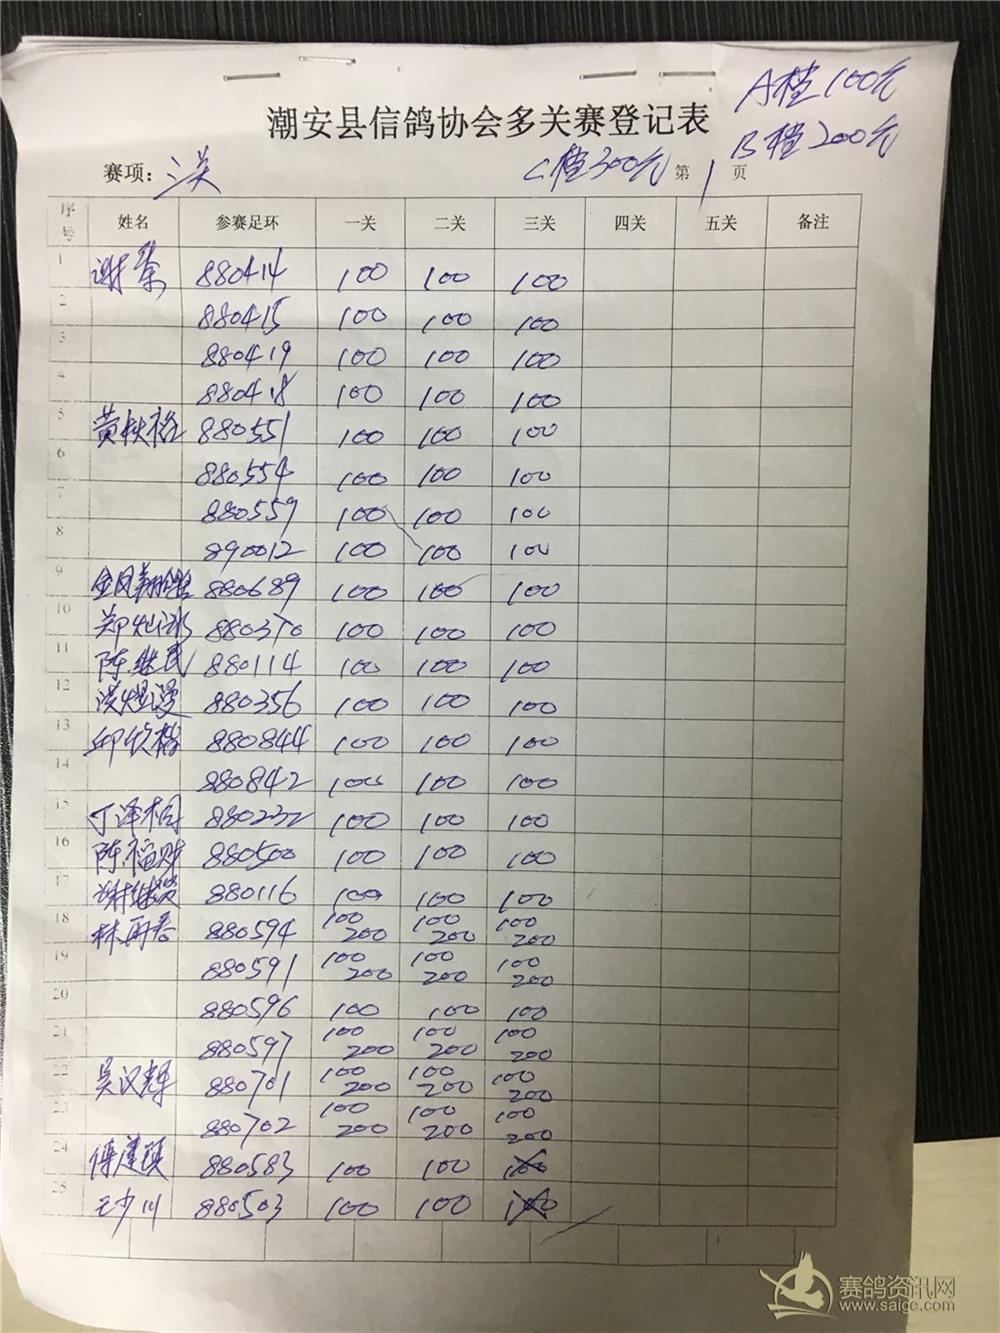 A档100元
潮安县信鸽协会多关赛登记表
B档200元
赛项：三关 C档300元 第1页
序号 姓名 参赛足环 一关 二关 三关 四关 五关 备注
1 谢荣 880414 100 100 100
2 880415 100 100 100
3 880419 100 100 100
4 880418 100 100 100
5 黄 880551 100 100 100
6 880554 100 100 100
7 880559 100 100 100
8 890012 100 100 100
9 金凤翔 880689 100 100 100
10 郑灿冰 880370 100 100 100
11 陈继民 880114 100 100 100
12 洪 880356 100 100 100
13 邱 880844 100 100 100
14 880842 100 100 100
15 丁泽桐 880232 100 100 100
16 陈福财 880500 100 100 100
17 谢继贤 880116 100 100 100
18 林再春 880594 100 200 100 200 100 200
19 880591 100 200 100 200 100 200
20 880596 100 100 100
21 880597 100 200 100 200 100 200
22 吴汉辉 880701 100 200 100 200 100 200
23 880702 100 200 100 200 100 200
24 880583 100 100 100
25 王少川 880503 100 100 100
赛鸽资讯网
www.saige.com